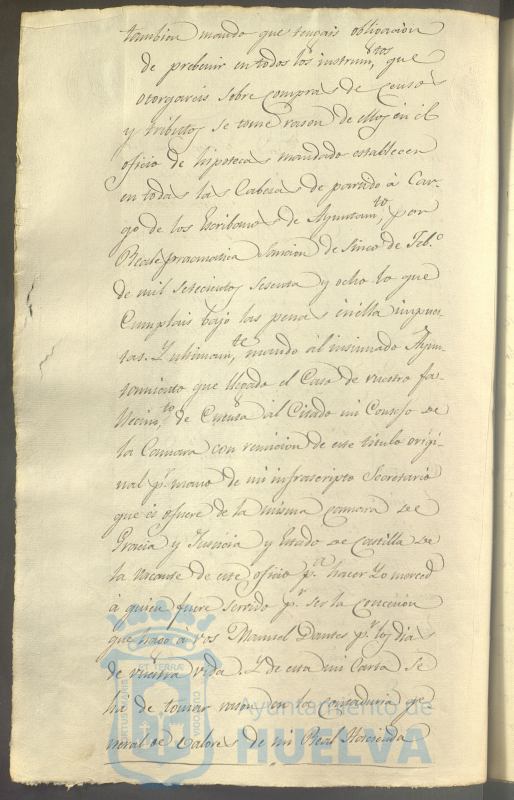 tambien mando que tengais obligacion
de prebenir en todos los instrum.tos que
otorgareis sobre compras de censos
y tributos se tome rason de ellos en el
oficio de hipotecas mandado establecer
en todas las Cabesas de partido à Car-
go de los Escribanos de Ayuntam.to por
Real pracmatica sancion de sinco de Feb.o
de mil setecientos sesenta y ocho lo que
Cumplais bajo las penas in ella impues
tas. Y ultimam.te mando al insinuado Ayun
tamiento que llegado el Caso de vuestro fa-
llecim.to de Cuenta al Citado mi Consejo de
la Camara con remicion de este titulo origi-
nal p.r mano de mi infrascripto Secretario
que es o fuere de la misma Camara de
Gracia y Justicia y Estado de Castilla de
la vacante de este oficio p.a hacer Yo merced
à quien fuere servido p.r ser la concecion
que hago à vos Manuel Dantes p.r los dias
de vuestra vida. Y de esta mi Carta se
hà de tomar rason en la Contaduria ge
neral de Valores de mi Real Hacienda
Ayuntamiento de
HUELVA